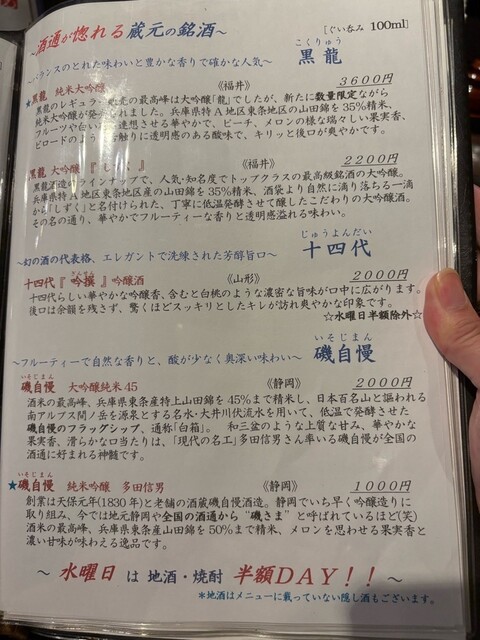 ~酒通が惚れる蔵元の銘酒~
[ぐい呑み 100ml]
こくりゅう
黒龍
バランスのとれた味わいと豊かな香りで確かな人気~
3600円
★黒龍 純米大吟醸 《福井》
黒龍のレギュラー 売の最高峰は大吟醸「龍」でしたが、新たに数量限定ながら
純米大吟醸が発売されました。兵庫県特A地区東条地区の山田錦を35%精米、
フルーツや白い 連想させる華やかで、ピーチ、メロンの様な瑞々しい果実香、
ビロードのよう 触りに透明感のある酸味で、キリッと後口が爽やかです。
黒龍 大吟醸『し 』 《福井》 2200円
黒龍酒造 ラインナップで、人気・知名度でトップクラスの最高級銘酒の大吟醸。
兵庫県特A地区東条地区産の山田錦を35%精米、酒袋より自然に滴り落ちる一滴
から「しずく」と名付けられた、丁寧に低温発酵させて醸したこだわりの大吟醸酒。
その名の通り、華やかでフルーティーな香りと透明感溢れる味わい。
じゅうよんだい
十四代
~幻の酒の代表格、エレガントで洗練された芳醇旨口~
ぎんせん
十四代『吟撰』吟醸酒 《山形》 2000円
十四代らしい華やかな吟醸香、含むと白桃のような濃密な旨味が口中に広がります。
後口は余韻を残さず、驚くほどスッキリとしたキレが訪れ爽やかな印象です。
☆水曜日半額除外☆
いそじまん
磯自慢
~フルーティーで自然な香りと、酸が少なく奥深い味わい~
いそじまん
磯自慢 大吟醸純米45 《静岡》 2000円
酒米の最高峰、兵庫県東条産特上山田錦を45%まで精米し、日本百名山と謳われる
南アルプス間ノ岳を源泉とする名水・大井川伏流水を用いて、低温で発酵させた
磯自慢のフラッグシップ、通称「白箱」。 和三盆のような上質な甘み、華やかな
果実香、滑らかな口当たりは、「現代の名工」多田信男さん率いる磯自慢が全国の
酒通に好まれる神髄です。
いそじまん
★磯自慢 純米吟醸 多田信男 《静岡》 1000円
創業は天保元年(1830年)と老舗の酒蔵磯自慢酒造。静岡でいち早く吟醸造りに
取り組み、今では地元静岡や全国の酒通から“磯さま”と呼ばれているほど(笑)
酒米の最高峰、兵庫県東条産山田錦を50%まで精米、メロンを思わせる果実香と
濃い甘味が味わえる逸品です。
~ 水曜日 は 地酒・焼酎 半額DAY!! ~
*地酒はメニューに載っていない隠し酒もございます。